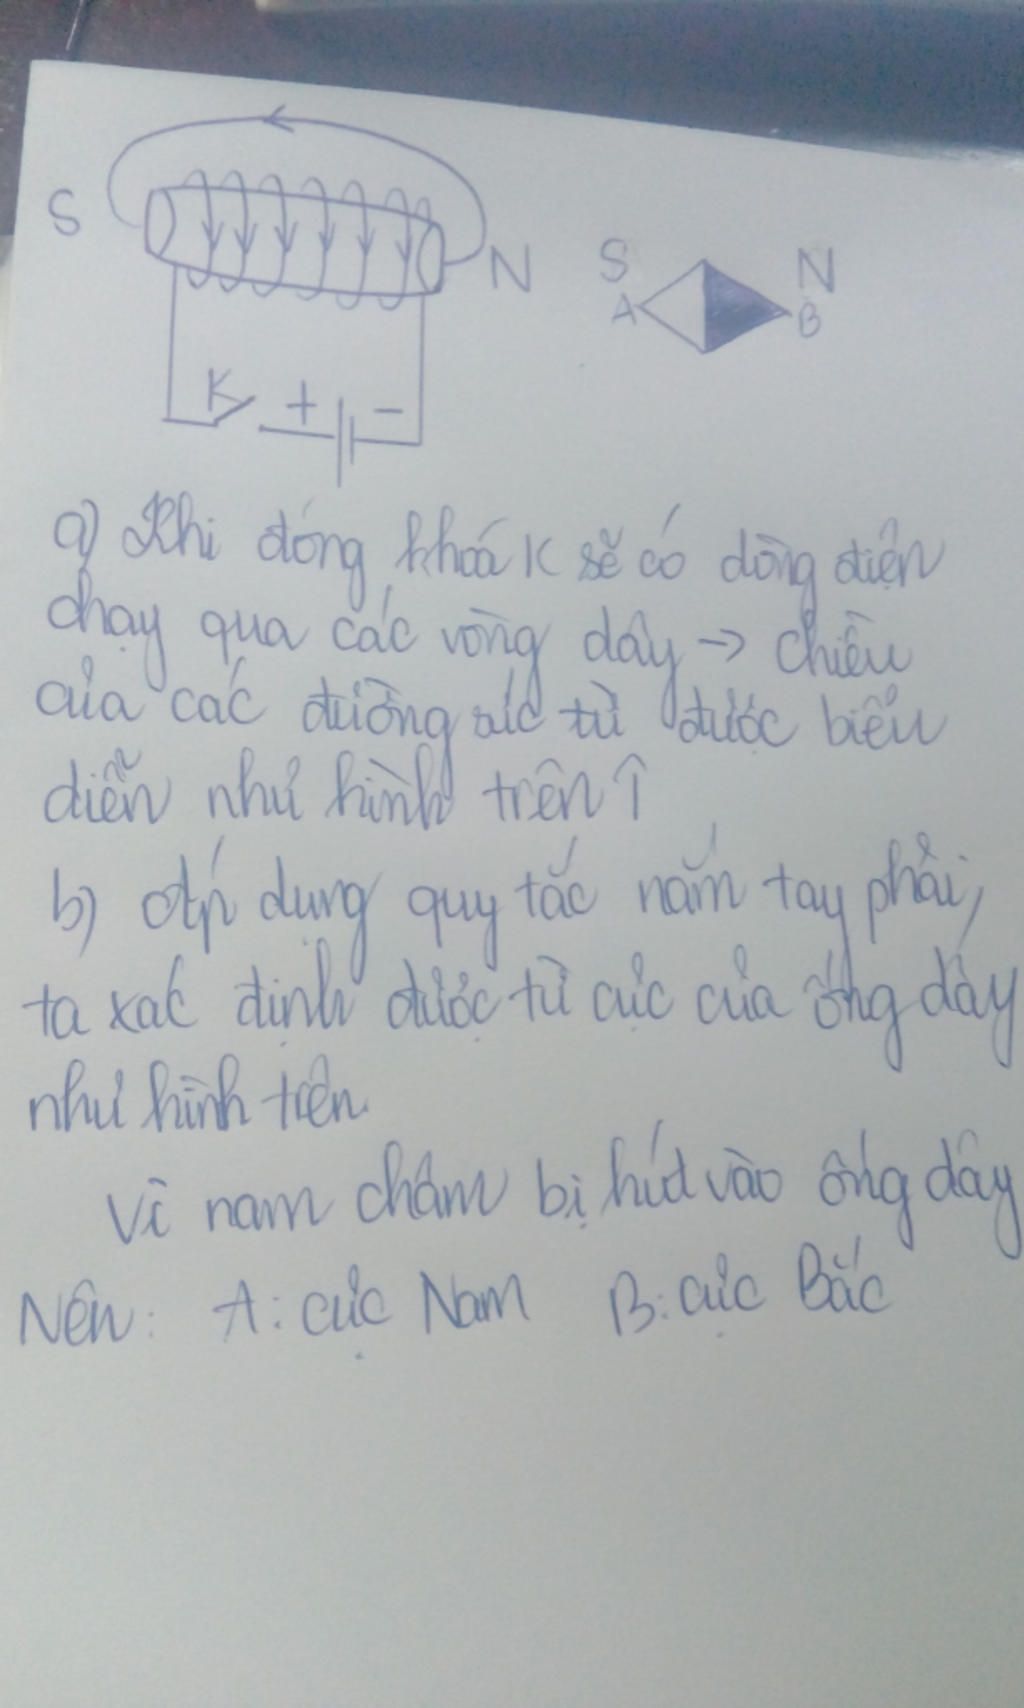 S
N
S
N
A
B
K
+
-
a) Khi đóng khoá K sẽ có dòng điện
chạy qua các vòng dây → chiều
của các đường sức từ được biểu
diễn như hình trên ↑
b) Áp dụng quy tắc nắm tay phải,
ta xác định được từ cực của ống dây
như hình trên
Vì nam châm bị hút vào ống dây
Nên: A: cực Nam B: cực Bắc